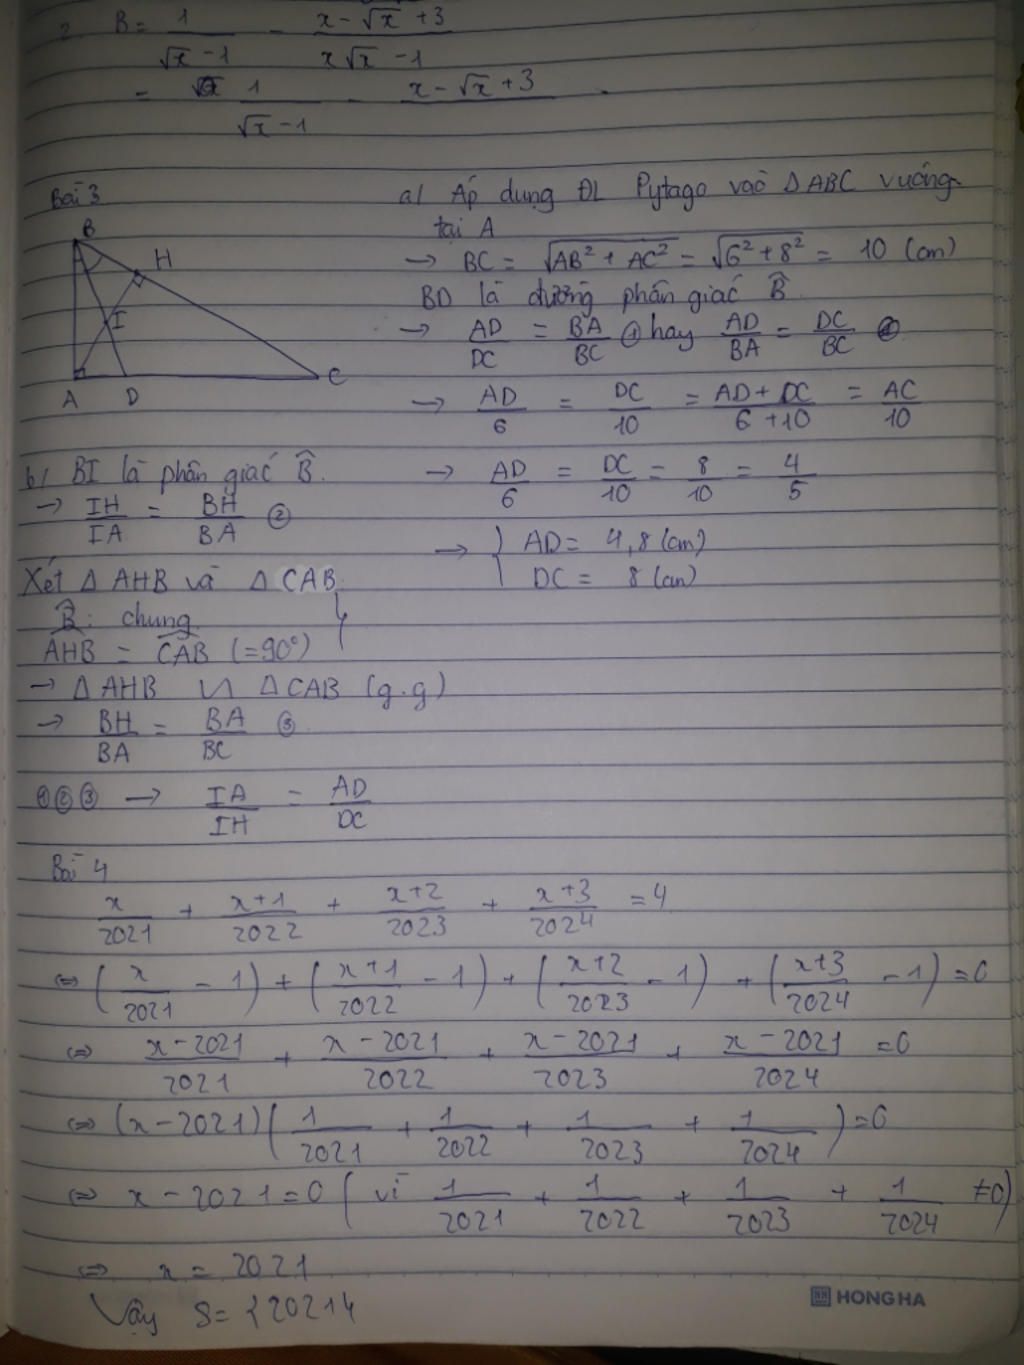 2. B = 1/(√x - 1) - (x - √x + 3)/(x√x - 1)
= 1/(√x - 1) - (x - √x + 3)/
Bài 3
a/ Áp dụng ĐL Pytago vào △ABC vuông
tại A
→ BC = √(AB² + AC²) = √(6² + 8²) = 10 (cm)
BD là đường phân giác B̂
→ AD/DC = BA/BC ① hay AD/BA = DC/BC
→ AD/6 = DC/10 = (AD + DC)/(6 + 10) = AC/10
→ AD/6 = DC/10 = 8/10 = 4/5
→ { AD = 4,8 (cm)
DC = 8 (cm)
B
H
I
A
D
C
b/ BI là phân giác B̂.
→ IH/IA = BH/BA ②
Xét △AHB và △CAB
B̂: chung
AHB = CAB (=90°)
→ △AHB ∽ △CAB (g.g)
→ BH/BA = BA/BC ③
①②③ → IA/IH = AD/DC
Bài 4
x/2021 + (x+1)/2022 + (x+2)/2023 + (x+3)/2024 = 4
⇔ (x/2021 - 1) + ((x+1)/2022 - 1) + ((x+2)/2023 - 1) + ((x+3)/2024 - 1) = 0
⇔ (x - 2021)/2021 + (x - 2021)/2022 + (x - 2021)/2023 + (x - 2021)/2024 = 0
⇔ (x - 2021)(1/2021 + 1/2022 + 1/2023 + 1/2024) = 0
⇔ x - 2021 = 0 (vì 1/2021 + 1/2022 + 1/2023 + 1/2024 ≠ 0)
⇔ x = 2021
Vậy S = {2021}
HONG HA